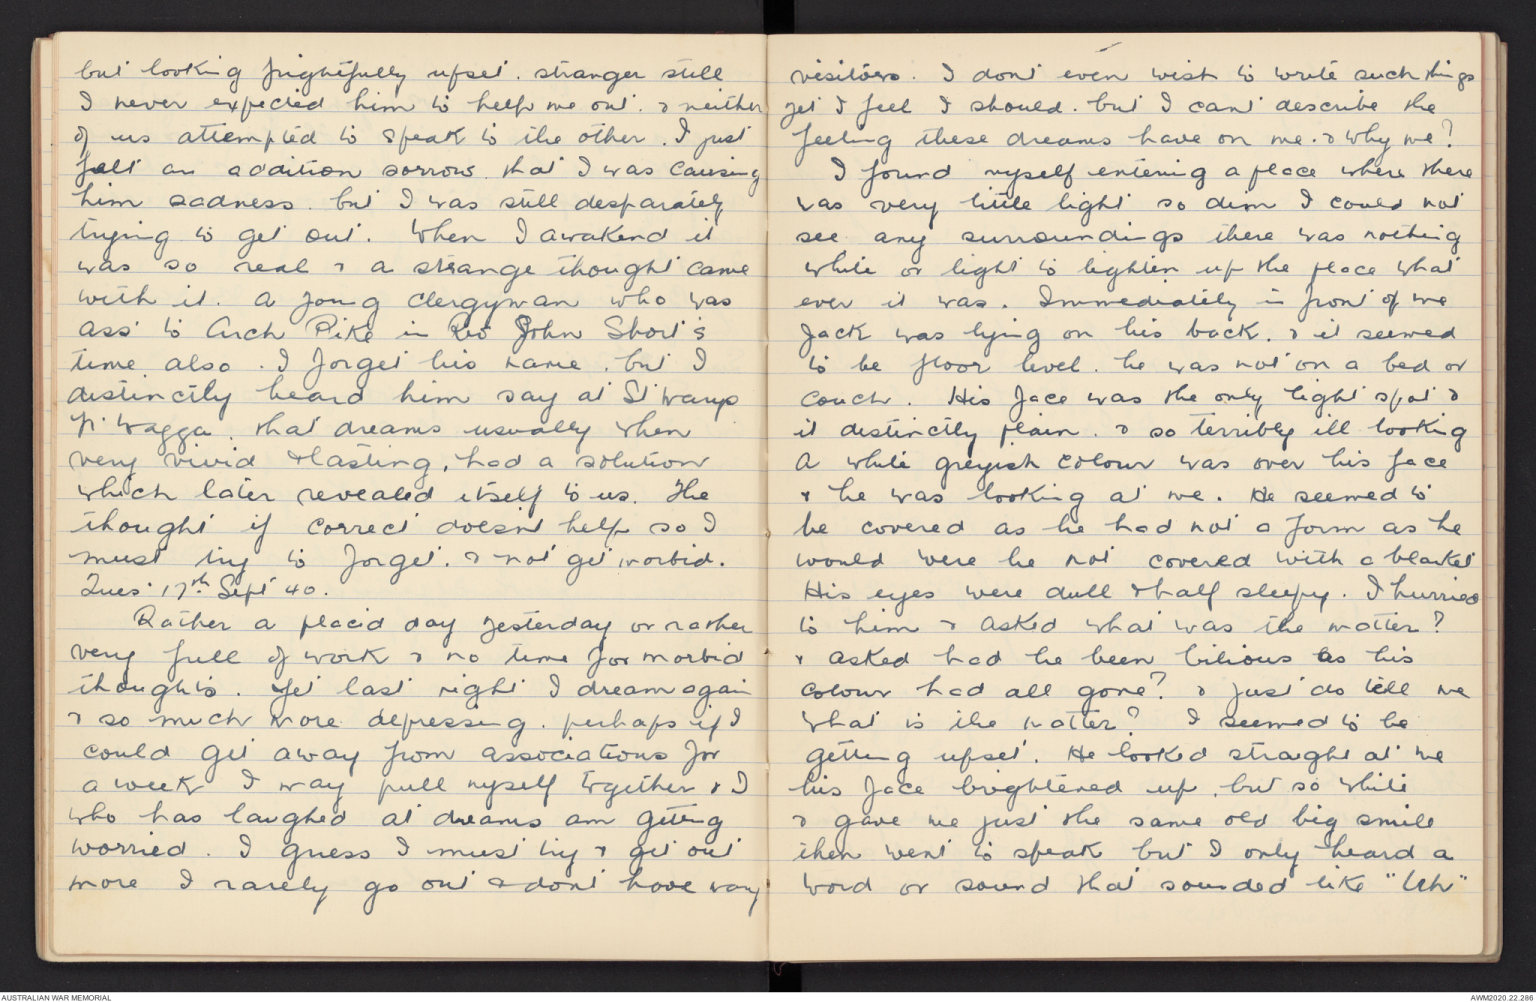 but looking frightfully upset. stranger still
I never expected him to help me out. & neither
of us attempted to speak to the other. I just
felt an addition sorrow that I was causing
him sadness. but I was still desparately
trying to get out. When I awakend it
was so real & a strange thought came
with it. a young clergyman who was
ass' to Arch Pike in Rev John Short's
time also. I forget his name. but I
distinctly heard him say at St
Wagga. that dreams usually when
very vivid & lasting, had a solution
which later revealed itself to us. The
thought if correct doesnt help so I
must try to forget. & not get morbid.
Tues 17th Sept 40.
Rather a placid day yesterday or rather
very full of work & no time for morbid
thoughts. Yet last night I dream again
& so much more depressing. perhaps if I
could get away from associations for
a week I may pull myself together & I
who has laughed at dreams am getting
worried. I guess I must try & get out
more I rarely go out & dont have many
visitors. I dont even wish to write such things
yet I feel I should. but I cant describe the
feeling these dreams have on me. & why me?
I found myself entering a place where there
was very little light so dim I could not
see any surroundings there was nothing
white or light to lighten up the place what
ever it was. Immediately in front of me
Jack was lying on his back. & it seemed
to be floor level. he was not on a bed or
couch. His face was the only light spot &
it distinctly plain. & so terribly ill looking
a white greyish colour was over his face
& he was looking at me. He seemed to
be covered as he had not a form as he
would were he not covered with a blanket
His eyes were dull & half sleepy. I hurried
to him & asked what was the matter?
& asked had he been bilious as his
colour had all gone? & just do tell me
what is the matter? I seemed to be
getting upset. He looked straight at me
his face brightened up, but so white
& gave me just the same old big smile
then went to speak but I only heard a
word or sound that sounded like "Uh"
AUSTRALIAN WAR MEMORIAL
AWM2020.22.266